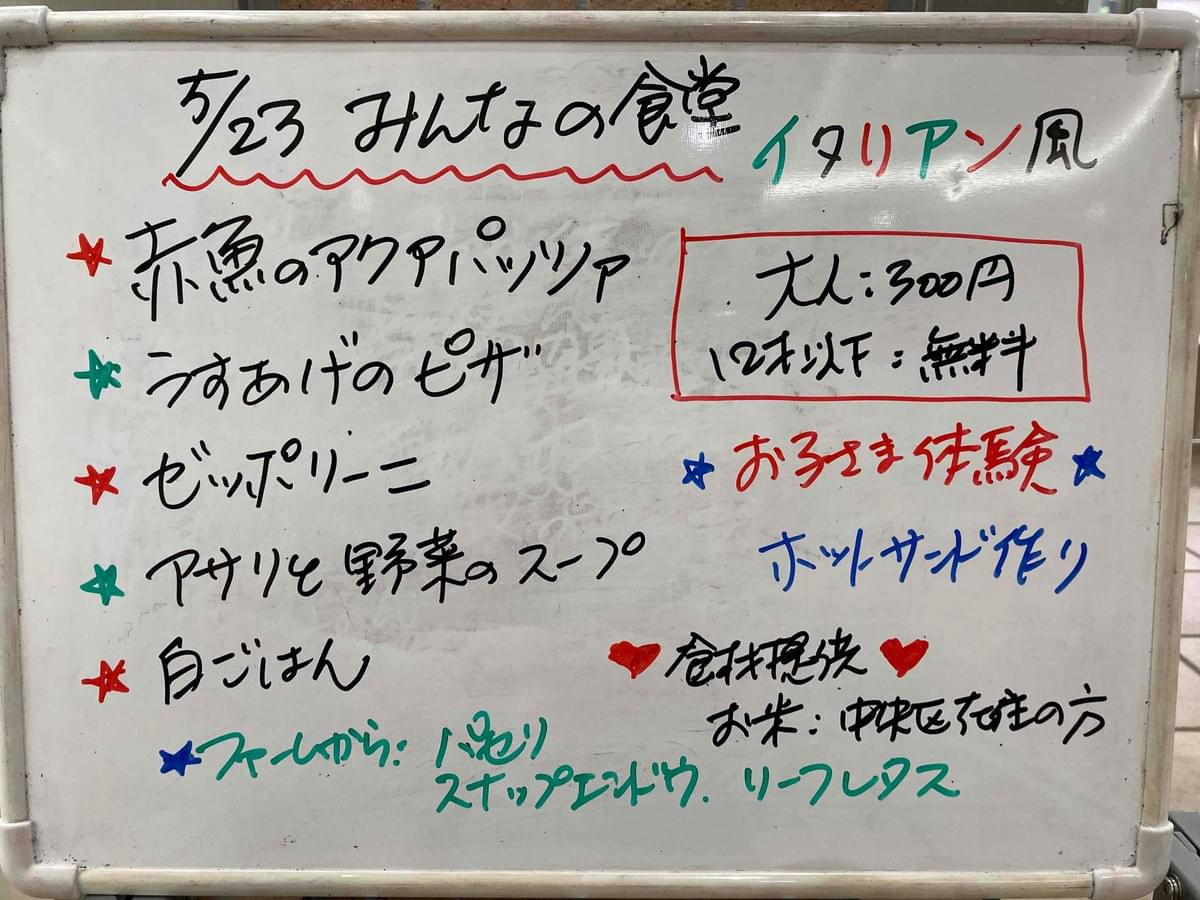 5/23 みんなの食堂
イタリアン風
★ 赤魚のアクアパッツァ
★ うすあげのピザ
★ ゼッポリーニ
★ アサリと野菜のスープ
★ 白ごはん
★ ファームから: パセリ
スナップエンドウ. リーフレタス
大人:300円
12才以下:無料
★ お子さま体験 ★
ホットサンド作り
♥ 食材提供 ♥
お米:中央区在住の方